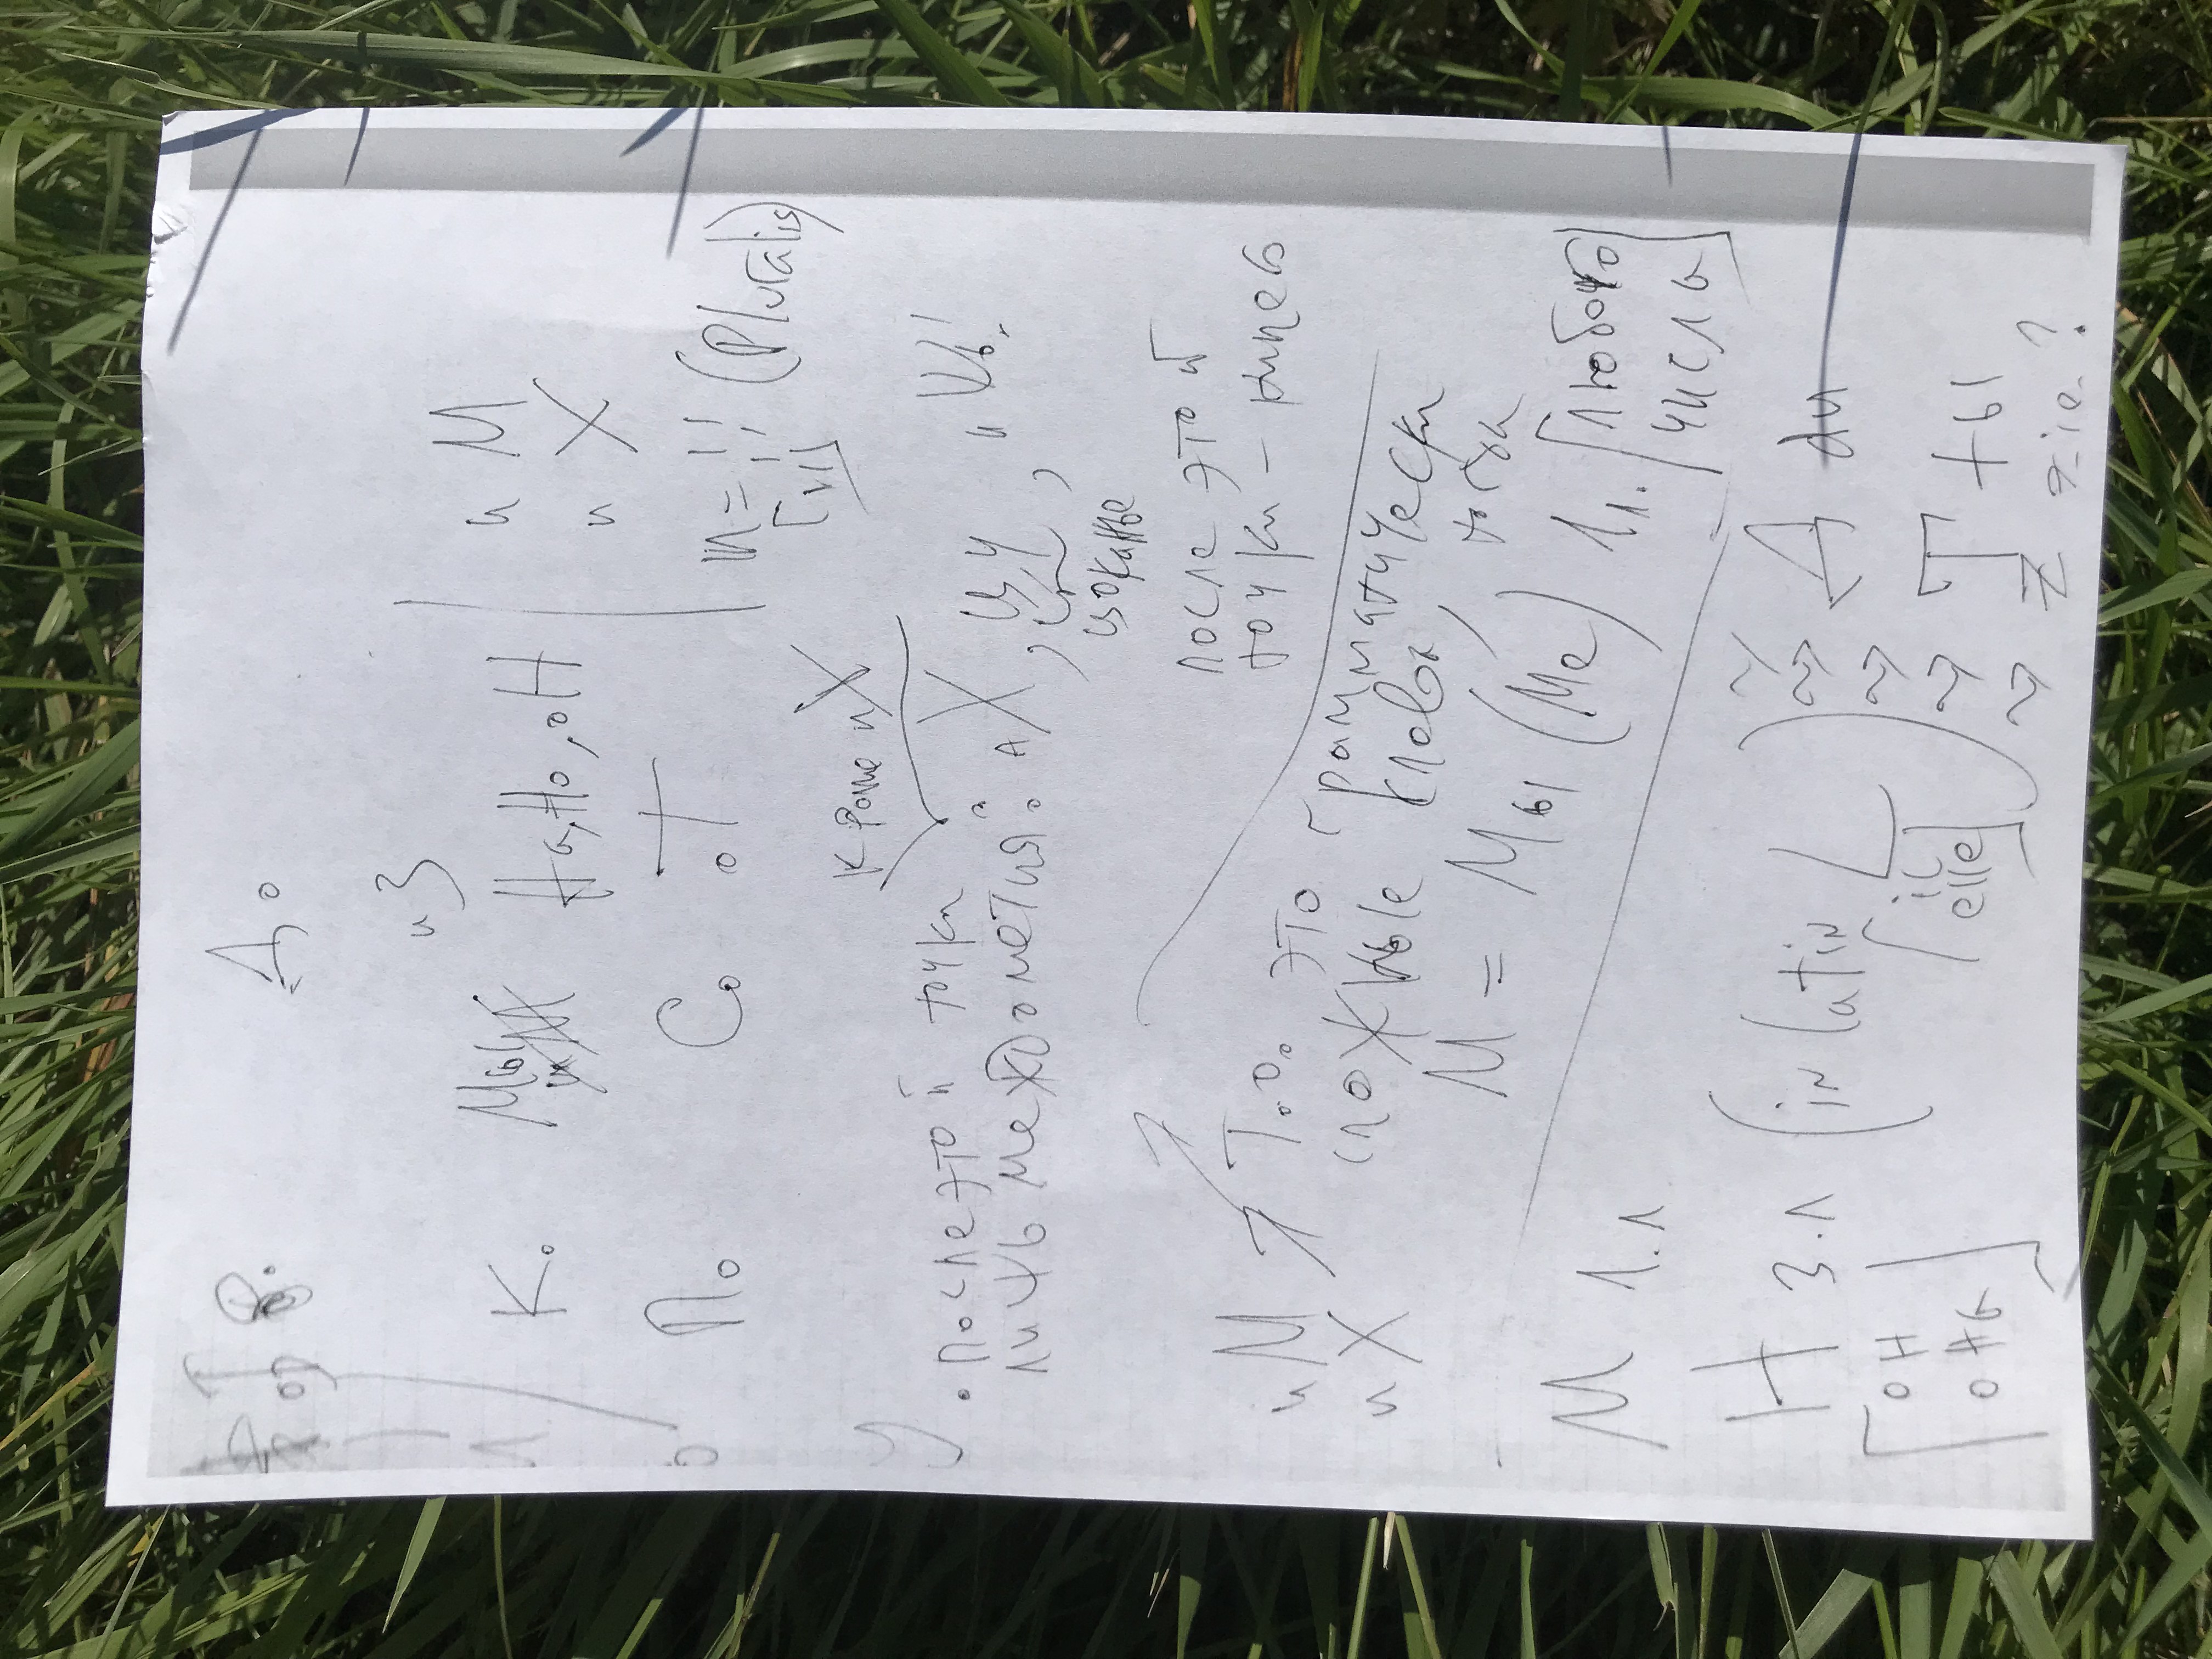 До
из
К. Мы На, Но, оН
и М
и Х
По Со оТ
и = !! (Pluralis)
кроме иХ
. после этой точки
лишь междометия: аХ, цу, иШь!
цоканье
после этой
точки – ничего
иМ
иХ
Т.о. это грамматически
сложные слова, тогда
М = Мы (Me) 1 л. [любого
числа]
М 1.л
Н 3.л (in latin L) Д du
[он
она]
[il
elle]
Т ты
Z zie ?